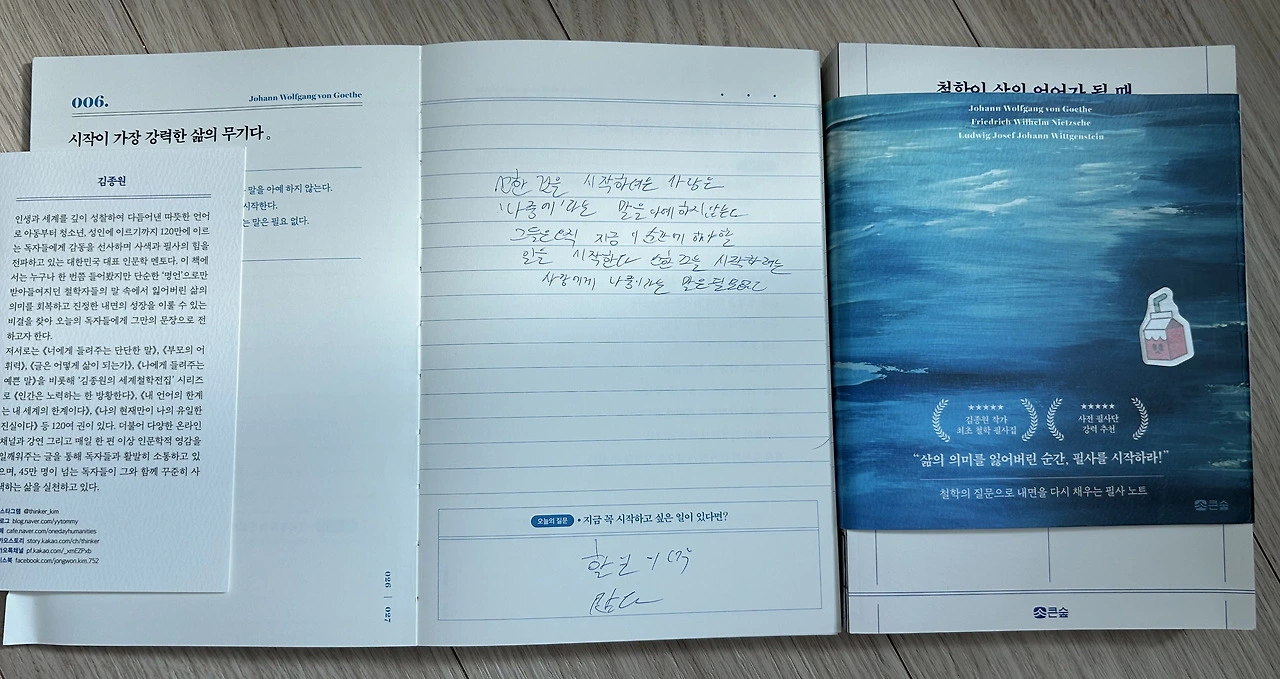 006.
Johann Wolfgang von Goethe
시작이 가장 강력한 삶의 무기다。
말을 아예 하지 않는다.
시작한다.
는 말은 필요 없다.
김종원
인생과 세계를 깊이 성찰하여 다듬어낸 따뜻한 언어
로 아동부터 청소년, 성인에 이르기까지 120만에 이르
는 독자들에게 감동을 선사하며 사색과 필사의 힘을
전파하고 있는 대한민국 대표 인문학 멘토다. 이 책에
서는 누구나 한 번쯤 들어봤지만 단순한 ‘명언’으로만
받아들여지던 철학자들의 말 속에서 잃어버린 삶의
의미를 회복하고 진정한 내면의 성장을 이룰 수 있는
비결을 찾아 오늘의 독자들에게 그만의 문장으로 전
하고자 한다.
저서로는 《너에게 들려주는 단단한 말》, 《부모의 어
휘력》, 《글은 어떻게 삶이 되는가》, 《나에게 들려주는
예쁜 말》을 비롯해 ‘김종원의 세계철학전집’ 시리즈
로 《인간은 노력하는 한 방황한다》, 《내 언어의 한계
는 내 세계의 한계이다》, 《나의 현재만이 나의 유일한
진실이다》 등 120여 권이 있다. 더불어 다양한 온라인
채널과 강연 그리고 매일 한 편 이상 인문학적 영감을
일깨워주는 글을 통해 독자들과 활발히 소통하고 있
으며, 45만 명이 넘는 독자들이 그와 함께 꾸준히 사
색하는 삶을 실천하고 있다.
스타그램 @thinker_kim
로그 blog.naver.com/yytommy
페 cafe.naver.com/onedayhumanities
카오스토리 story.kakao.com/ch/thinker
카오톡채널 pf.kakao.com/_xmEZPxb
이스북 facebook.com/jongwon.kim.752
026 | 027
시작하려는 사람은
'나중에'라는 말을 아예 하지 않는다
그들은 오직 지금 이 순간에 해야 할
일을 시작한다 시작하려는
사람에게 나중이라는 말은 필요없다
오늘의 질문 • 지금 꼭 시작하고 싶은 일이 있다면?
많다
철학이 삶의 언어가 될 때
Johann Wolfgang von Goethe
Friedrich Wilhelm Nietzsche
Ludwig Josef Johann Wittgenstein
★★★★★
김종원 작가
최초 철학 필사집
★★★★★
사전 필사단
강력 추천
“삶의 의미를 잃어버린 순간, 필사를 시작하라!”
철학의 질문으로 내면을 다시 채우는 필사 노트
큰숲
큰숲